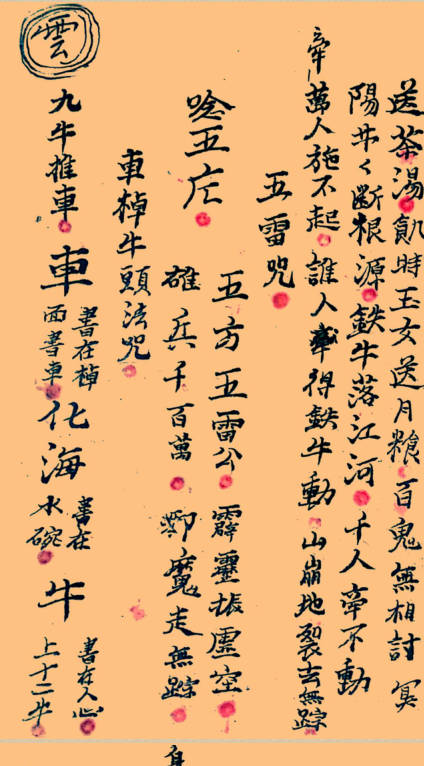 送茶湯飢時玉女送月粮百鬼無相討冥
陽廾々断根源鉄牛落江河千人牵不動
牵萬人施不起誰人牽得鉄牛動山崩地裂去無踪
五雷咒
五方五雷公霹靂振虛空
唵五庀
雄兵千百萬 魔走無踪
車棹牛頭法咒
九牛推車 車 書在棹面書車 化海 書在水碗 牛 書在人心上十二牛
雲
身